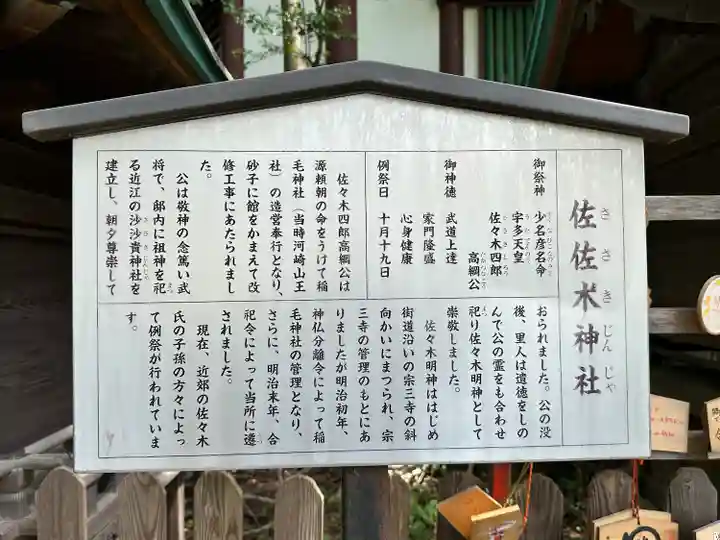 佐佐木神社
ささきじんじゃ
御祭神 少名彦名命
宇多天皇
佐々木四郎
高綱公
御神徳 武道上達
家門隆盛
心身健康
例祭日 十月十九日
佐々木四郎高綱公は
源頼朝の命をうけて稲
毛神社(当時河崎山王
社)の造営奉行となり、
砂子に館をかまえて改
修工事にあたられまし
た。
公は敬神の念篤い武
将で、邸内に祖神を祀
る近江の沙沙貴神社を
建立し、朝夕尊崇して
おられました。公の没
後、里人は遺徳をしの
んで公の霊をも合わせ
祀り佐々木明神として
崇敬しました。
佐々木明神ははじめ
街道沿いの宗三寺の斜
向かいにまつられ、宗
三寺の管理のもとにあ
りましたが明治初年、
神仏分離令によって稲
毛神社の管理となり、
さらに、明治末年、合
祀令によって当所に遷
されました。
現在、近郊の佐々木
氏の子孫の方々によっ
て例祭が行われていま
す。